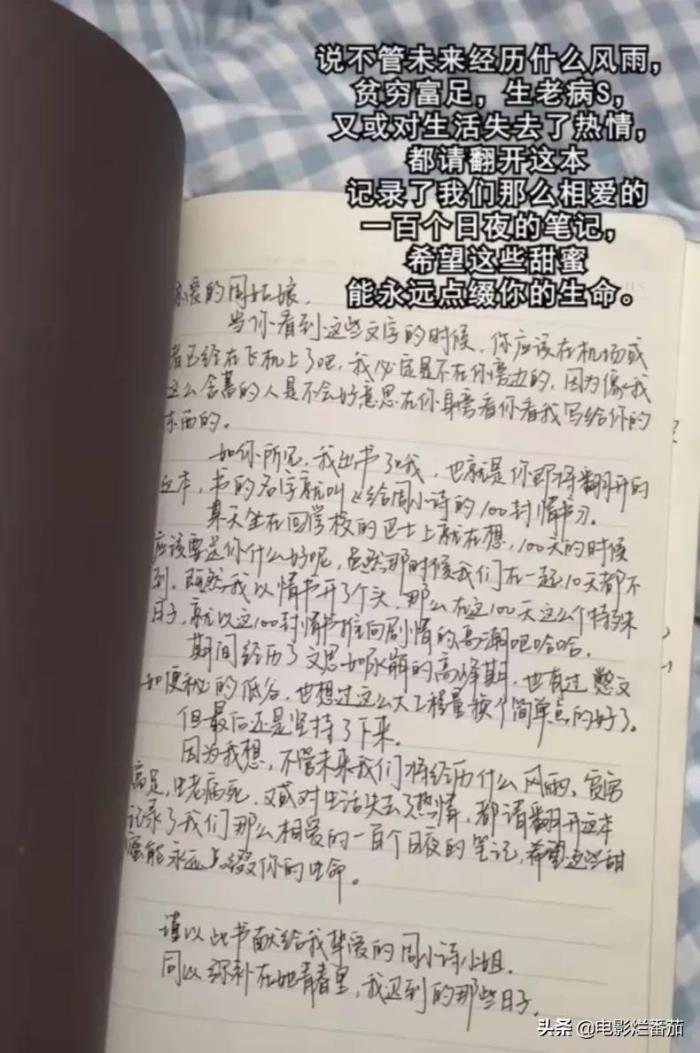 说不管未来经历什么风雨，
贫穷富足，生老病S，
又或对生活失去了热情，
都请翻开这本
记录了我们那么相爱的
一百个日夜的笔记，
希望这些甜蜜
能永远点缀你的生命。
爱的周姑娘，
当你看到这些文字的时候，你应该在机场或
者已经在飞机上了吧，我必定是不在你旁边的，因为像我
这么含蓄的人是不会好意思在你身旁看你看我写给你的
东西的。
如你所见，我出书了哦，也就是你即将翻开的
这本，书的名字就叫《给周小诗的100封情书》。
某天坐在回学校的巴士上就在想，100天的时候
应该要送你什么好呢，虽然那时候我们在一起10天都不
到，既然我以情书开了个头，那么在这100天这么个特殊
日子，就以这100封情书推向剧情的高潮吧哈哈。
期间经历了文思如水崩的高峰期，也有过憋文
如便秘的低谷，也想过这么大工程量换个简单点的好了。
但最后还是坚持了下来。
因为我想，不管未来我们将经历什么风雨，贫穷
富足，生老病死，又或对生活失去了热情，都请翻开这本
记录了我们那么相爱的一百个日夜的笔记，希望这些甜
蜜能永远点缀你的生命。
谨以此书献给我挚爱的周小诗小姐，
同以弥补在她青春里，我迟到的那些日子。
头条@电影烂番茄